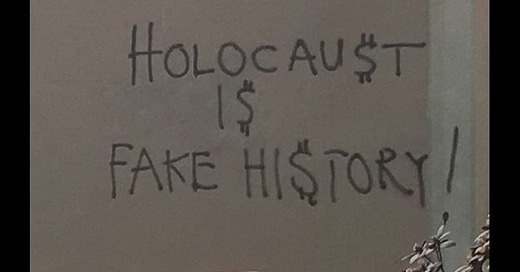 HOLOCAU$T
I$
FAKE HI$TORY!